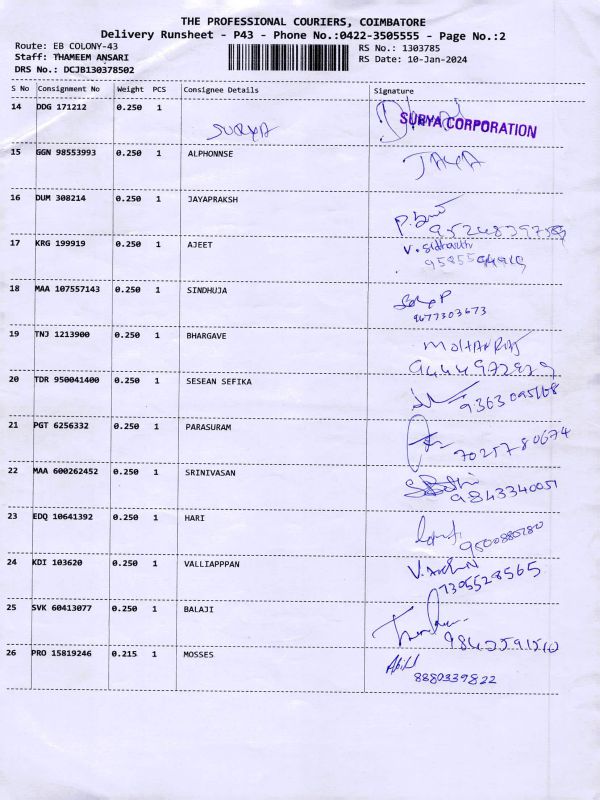 THE PROFESSIONAL COURIERS, COIMBATORE
Delivery Runsheet - P43 - Phone No.:0422-3505555 - Page No.:2
Route: EB COLONY-43 RS No.: 1303785
Staff: THAMEEM ANSARI RS Date: 10-Jan-2024
DRS No.: DCJB130378502
S No Consignment No Weight PCS Consignee Details Signature
14 DDG 171212 0.250 1
SURYA SURYA CORPORATION
15 GGN 98553993 0.250 1 ALPHONNSE JAYA
16 DUM 308214 0.250 1 JAYAPRAKSH
17 KRG 199919 0.250 1 AJEET V. Sidharth
18 MAA 107557143 0.250 1 SINDHUJA
9677303673
19 TNJ 1213900 0.250 1 BHARGAVE MOHANRAJ
9444972929
20 TDR 950041400 0.250 1 SESEAN SEFIKA
9363095168
21 PGT 6256332 0.250 1 PARASURAM
7025780674
22 MAA 600262452 0.250 1 SRINIVASAN
9843340051
23 EDQ 10641392 0.250 1 HARI
9500880780
24 KDI 103620 0.250 1 VALLIAPPPAN
7305528565
25 SVK 60413077 0.250 1 BALAJI
26 PRO 15819246 0.215 1 MOSSES
8880339822